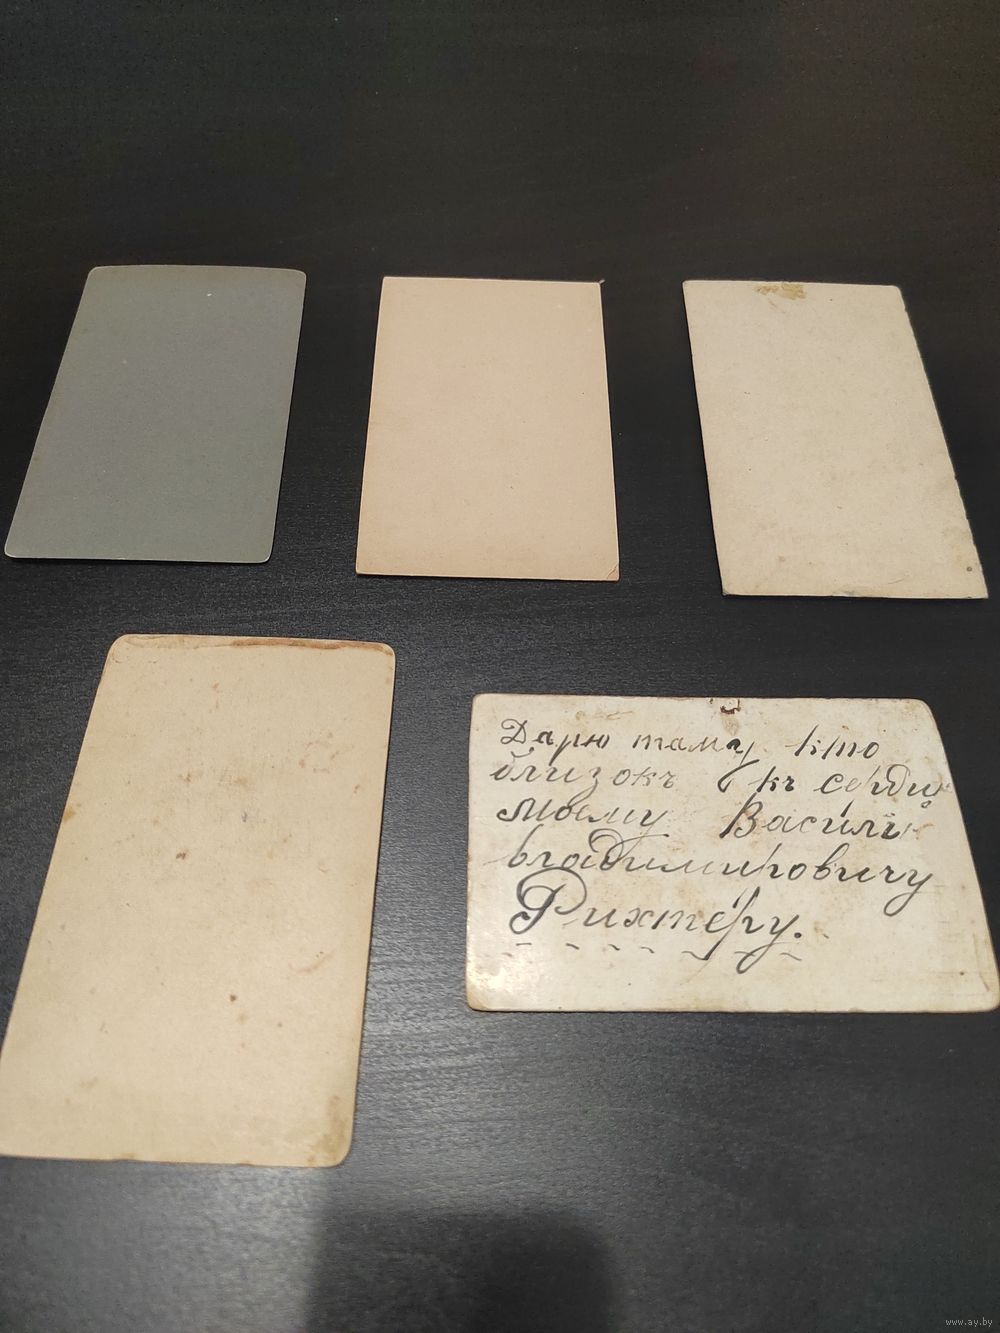 Дарю таму кто
близокъ къ сердцу
моему Василію
владимировичу
Рихтеру.
www.ay.by